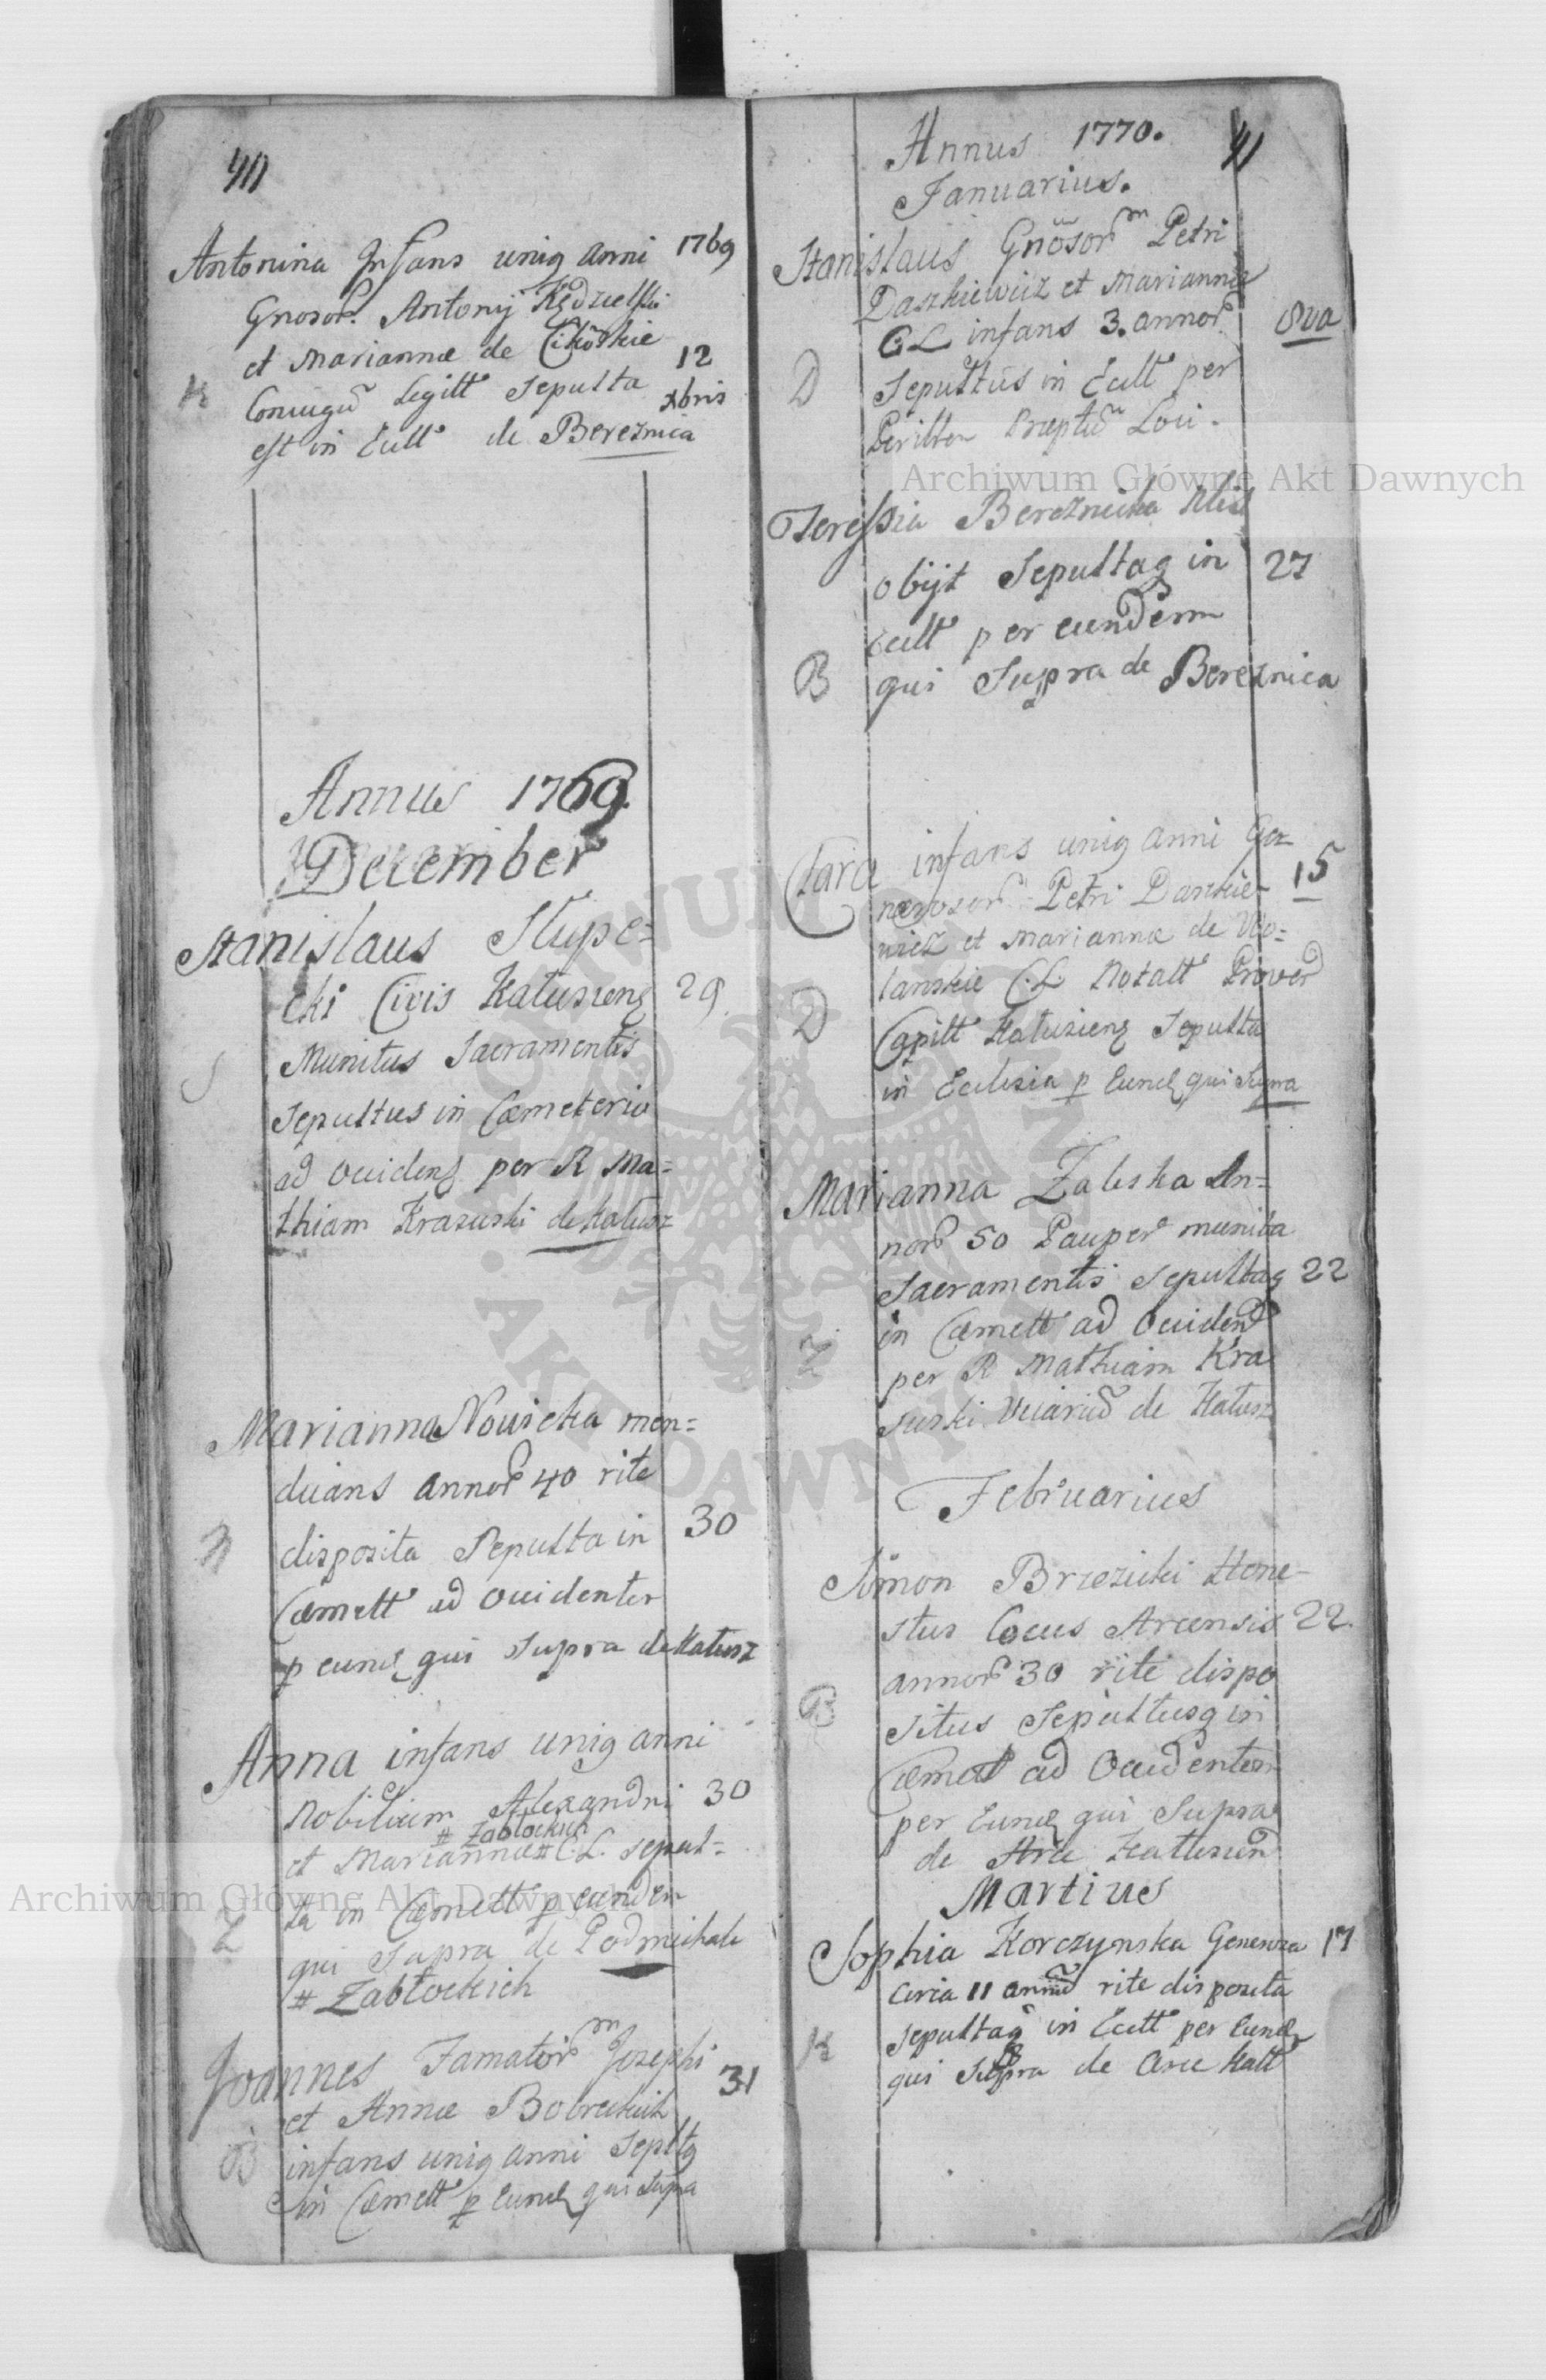 40
Antonina Infans uniq anni 1769
Gnosor. Antonij Kędzielski
et Mariannæ de Cikoskie 12
K Coniugū Legitt Sepulta xbris
est in Eccl de Bereznica
Annus 1769.
December
Stanislaus Stupe=
cki Civis Kałusienq 29
Munitus Sacramentis
S
Sepultus in Cæmeterio
ad Occidenq per R Ma=
thiam Krasuski de Kałusz
Marianna Nowicka men=
dicans annor 40 rite
N disposita Sepulta in 30
Cæmett ad Occidentem
p eund qui Supra de Kałusz
Anna infans uniq anni
Nobilium Alexandri 30
# Zabłockich
et Mariannæ # C.L. sepul=
Z ta in Cæmett p eundem
qui Supra de Podmichale
# Zabłockich
Joannes Famator m Josephi
et Annæ Bobreckich 31
B infans uniq anni Septq
in Cæmett p Eund qui Supra
Annus 1770. 41
Januarius.
Stanislaus Gnosor m Petri
Daszkiewicz et Mariannæ
C L infans 3. annor 8va
D Sepultus in Eccl per
Perillrem Præptū Loci.
Teressia Bereznicka
obijt Sepultaq in 27
Eccl per eundem
B qui Supra de Bereznica
Clara infans uniq anni Ge
nerosor Petri Daszkie= 15
wicz et Mariannæ de Wo=
lanskie C.L. Notatt
D Capitt Kałusienq Sepulta
in Eclesia p Eund qui Supra
Marianna Zaleska An=
nor 50 Pauper munita
Sacramentis Sepultaq 22
in Cæmett ad Occident
Z per R Mathiam Kra
suski Vicariū de Kałusz
Februarius
Simon Brzezicki Hone=
stus Cocus Arcensis 22.
annor 30 rite dispo
B situs Sepultusq in
Cæmet ad Occidentem
per Eund qui Supra
de Arce Kałusien
Martius
Sophia Korczynska Generosa 17
Circa 11 annū rite disposita
K Sepultaq in Eccl per Eund
qui Supra de Arce Kałł
Archiwum Główne Akt Dawnych
Archiwum Główne Akt Dawnych
ARCHIWUM GŁÓWNE AKT DAWNYCH